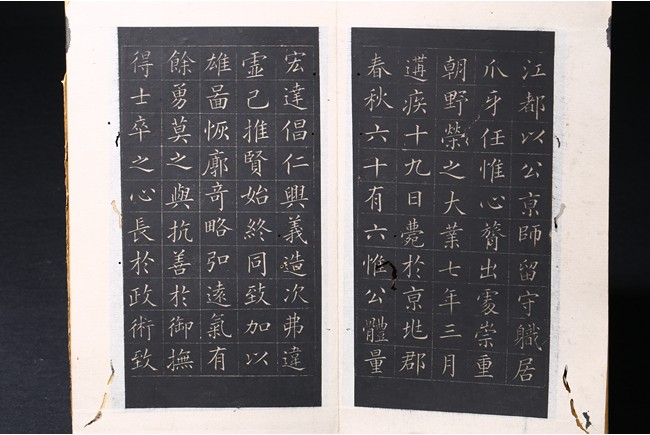 江都以公京師留守軄居
爪牙任惟心膂出處崇重
朝野榮之大業七年三月
遘疾十九日薨於京兆郡
春秋六十有六惟公體量
宏達倡仁興義造次弗違
虛己推賢始終同致加以
雄啚恢廓奇略弘遠氣有
餘勇莫之與抗善於御撫
得士卒之心長於政術致